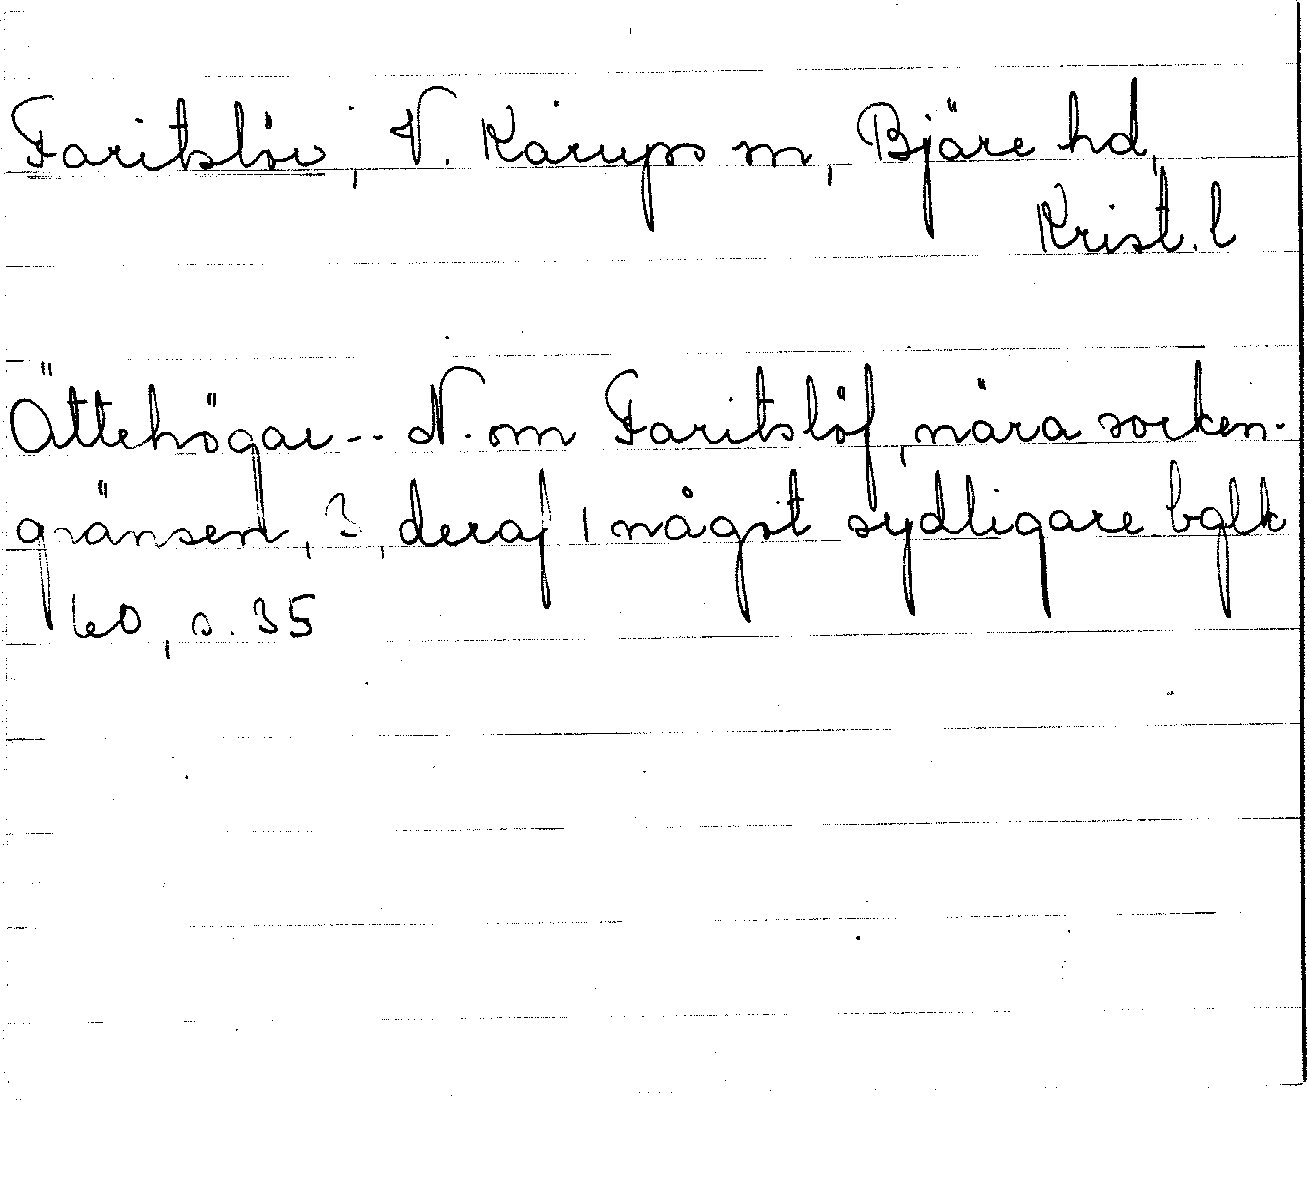 Faritslöv, V. Karups sn, Bjäre hd,
Krist. l
Ättehögar -- N. om Faritslöf, nära socken-
gränsen, 3, deraf 1 något sydligare bglk
60, s. 35